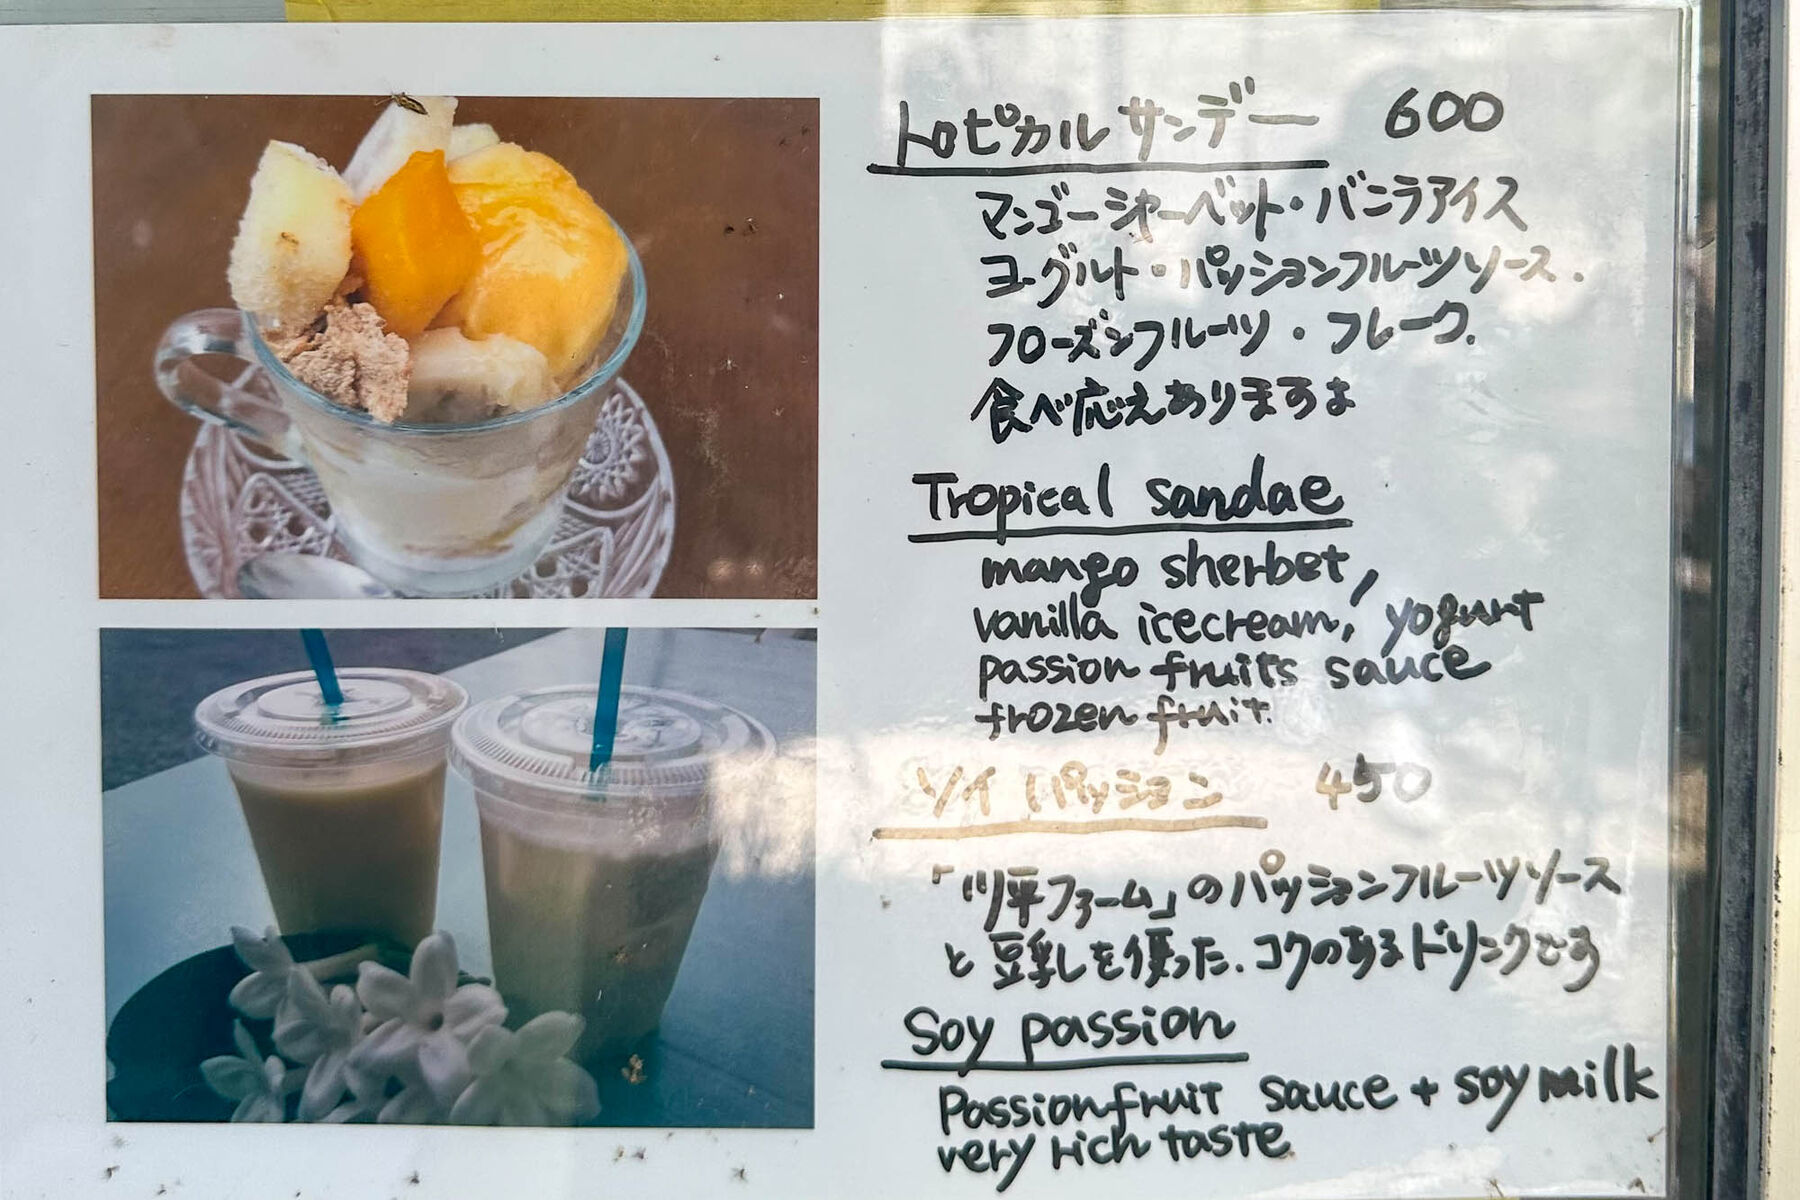 トロピカルサンデー 600
マンゴーシャーベット・バニラアイス
ヨーグルト・パッションフルーツソース.
フローズンフルーツ・フレーク.
食べ応えありますよ
Tropical sandae
mango sherbet,
vanilla icecream, yogurt
passion fruits sauce
frozen fruit.
ソイ パッション 450
「川平ファーム」のパッションフルーツソース
と豆乳を使った.コクのあるドリンクです
Soy passion
Passionfruit sauce + soy milk
very rich taste